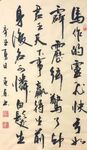 馬作的盧飛快弓如
霹靂弦驚了卻
君王天下事贏得生
前身後名可憐白髮生